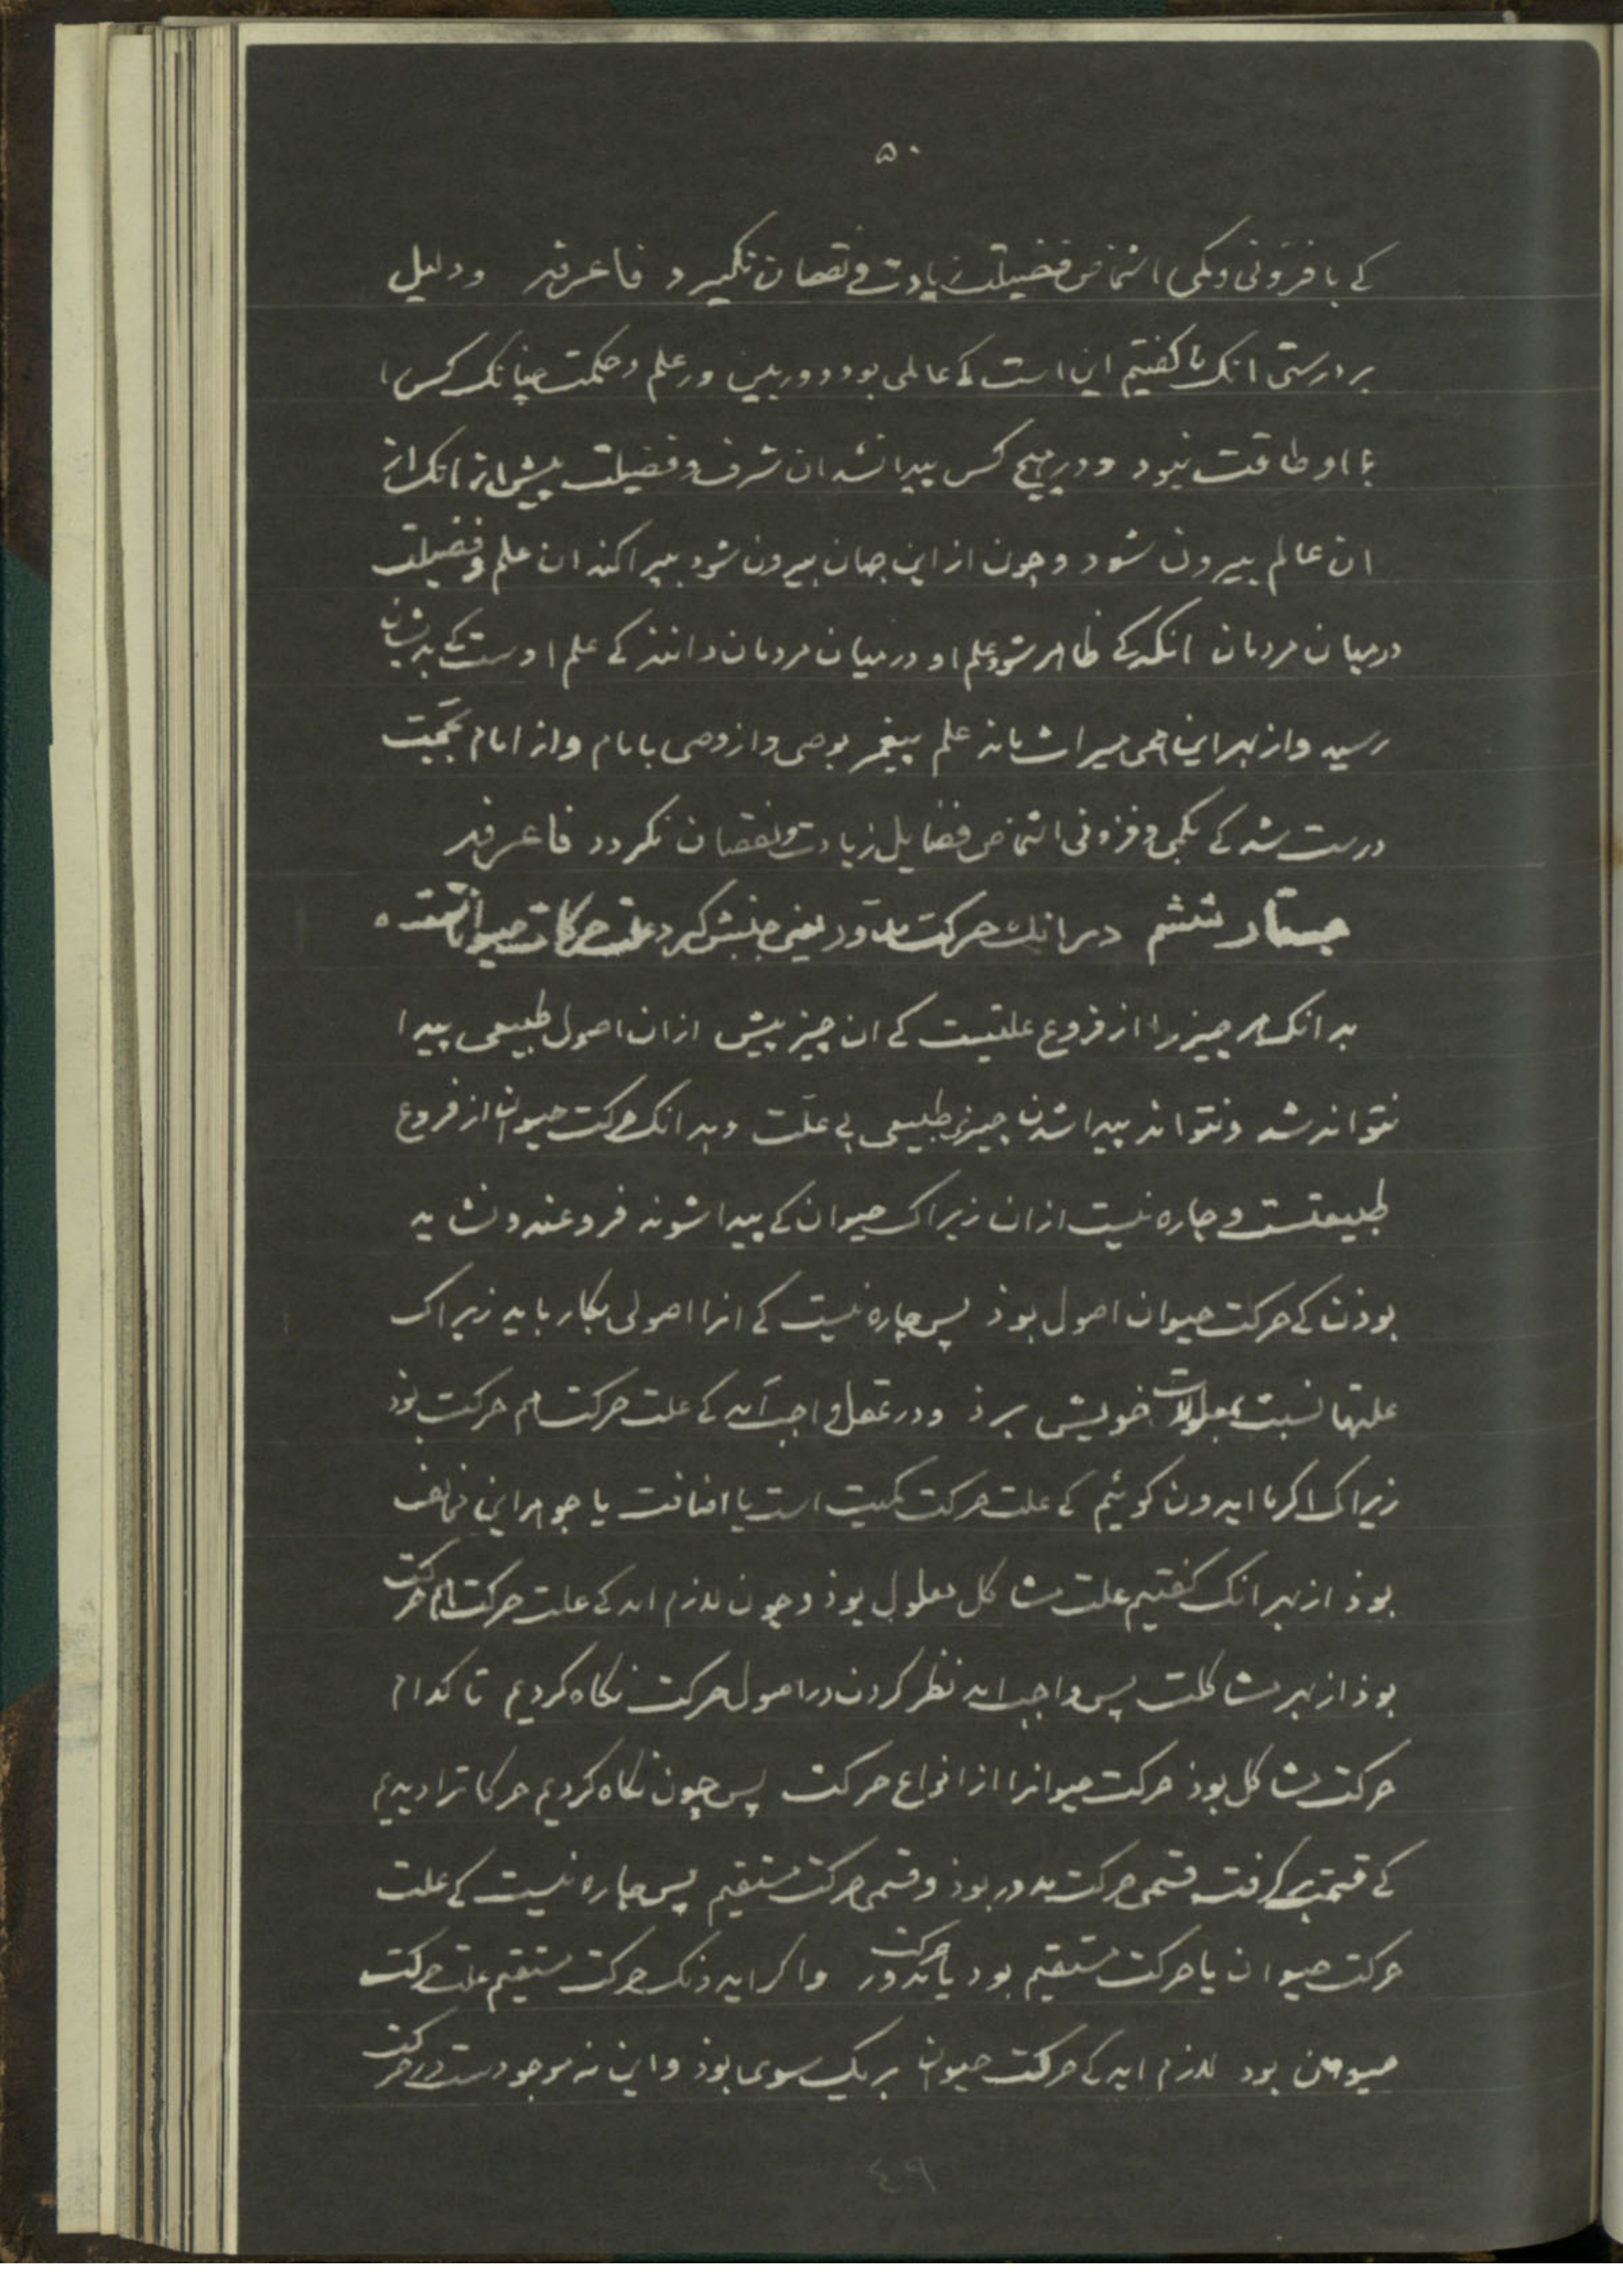 ۵۰
کے بافزونی وبکمی اشخاص فضیلت زیادت ونقصان نگیرد فاعرفه ودلیل
بر درستی انک ما کفتیم این است کے عالمی بود دوربین در علم وحکمت چنانک کس را
با او طاقت نبود ودر هیچ کس پیدا نشد ان شرف وفضیلت پیش از انک از
ان عالم بیرون شود وچون از این جهان بیرون شود بپراکند ان علم وفضیلت
درمیان مردمان انکه کے ظاهر شود علم او درمیان مردمان دانند کے علم اوست کے بدیشان
رسید واز بهر این همی میراث ماند علم پیغمبر بوصی واز وصی بامام واز امام بحجت
درست شد کے بکمی وفزونی اشخاص فضایل زیادت ونقصان نکردد فاعرفه
جستار ششم در انک حرکت مدور یعنی جنبش کرد علت حرکات حیوانست
بدانک هر چیز را از فروع علتیست کے ان چیز پیش از ان اصول طبیعی پیدا
نتواند شد ونتواند پیدا شدن چیزی طبیعی بی علت وبدانک حرکت حیوان از فروع
طبیعتست وچاره نیست ازان زیراک حیوان کے پیدا شوند فروعند ونشاید
بوذن کے حرکت حیوان اصول بوذ پس چاره نیست کے انرا اصولی بکار باید زیراک
علتها نسبت بمعلولات خویش برذ ودر عقل واجب آید کے علت حرکت هم حرکت بوذ
زیراک اکر ما ایدون کوئیم کے علت حرکت کمیت است یا اضافت یا جوهر این مخالف
بوذ از بهر انک کفتیم علت مشاکل معلول بوذ وچون لازم اید کے علت حرکت هم حرکت
بوذ از بهر مشاکلت پس واجب اید نظر کردن در اصول حرکت نکاه کردیم تا کدام
حرکت مشاکل بوذ حرکت حیوانرا از انواع حرکت پس چون نکاه کردیم حرکاترا دیدیم
کے قسمت برکرفت قسمی حرکت مدور بوذ وقسمی حرکت مستقیم پس چاره نیست کے علت
حرکت حیوان یا حرکت مستقیم بود یا حرکت مدور واکر ایدونک حرکت مستقیم علت حرکت
حیوان بود لازم اید کے حرکت حیوان بریک سوی بوذ واین نه موجودست در حرکت
٤٩